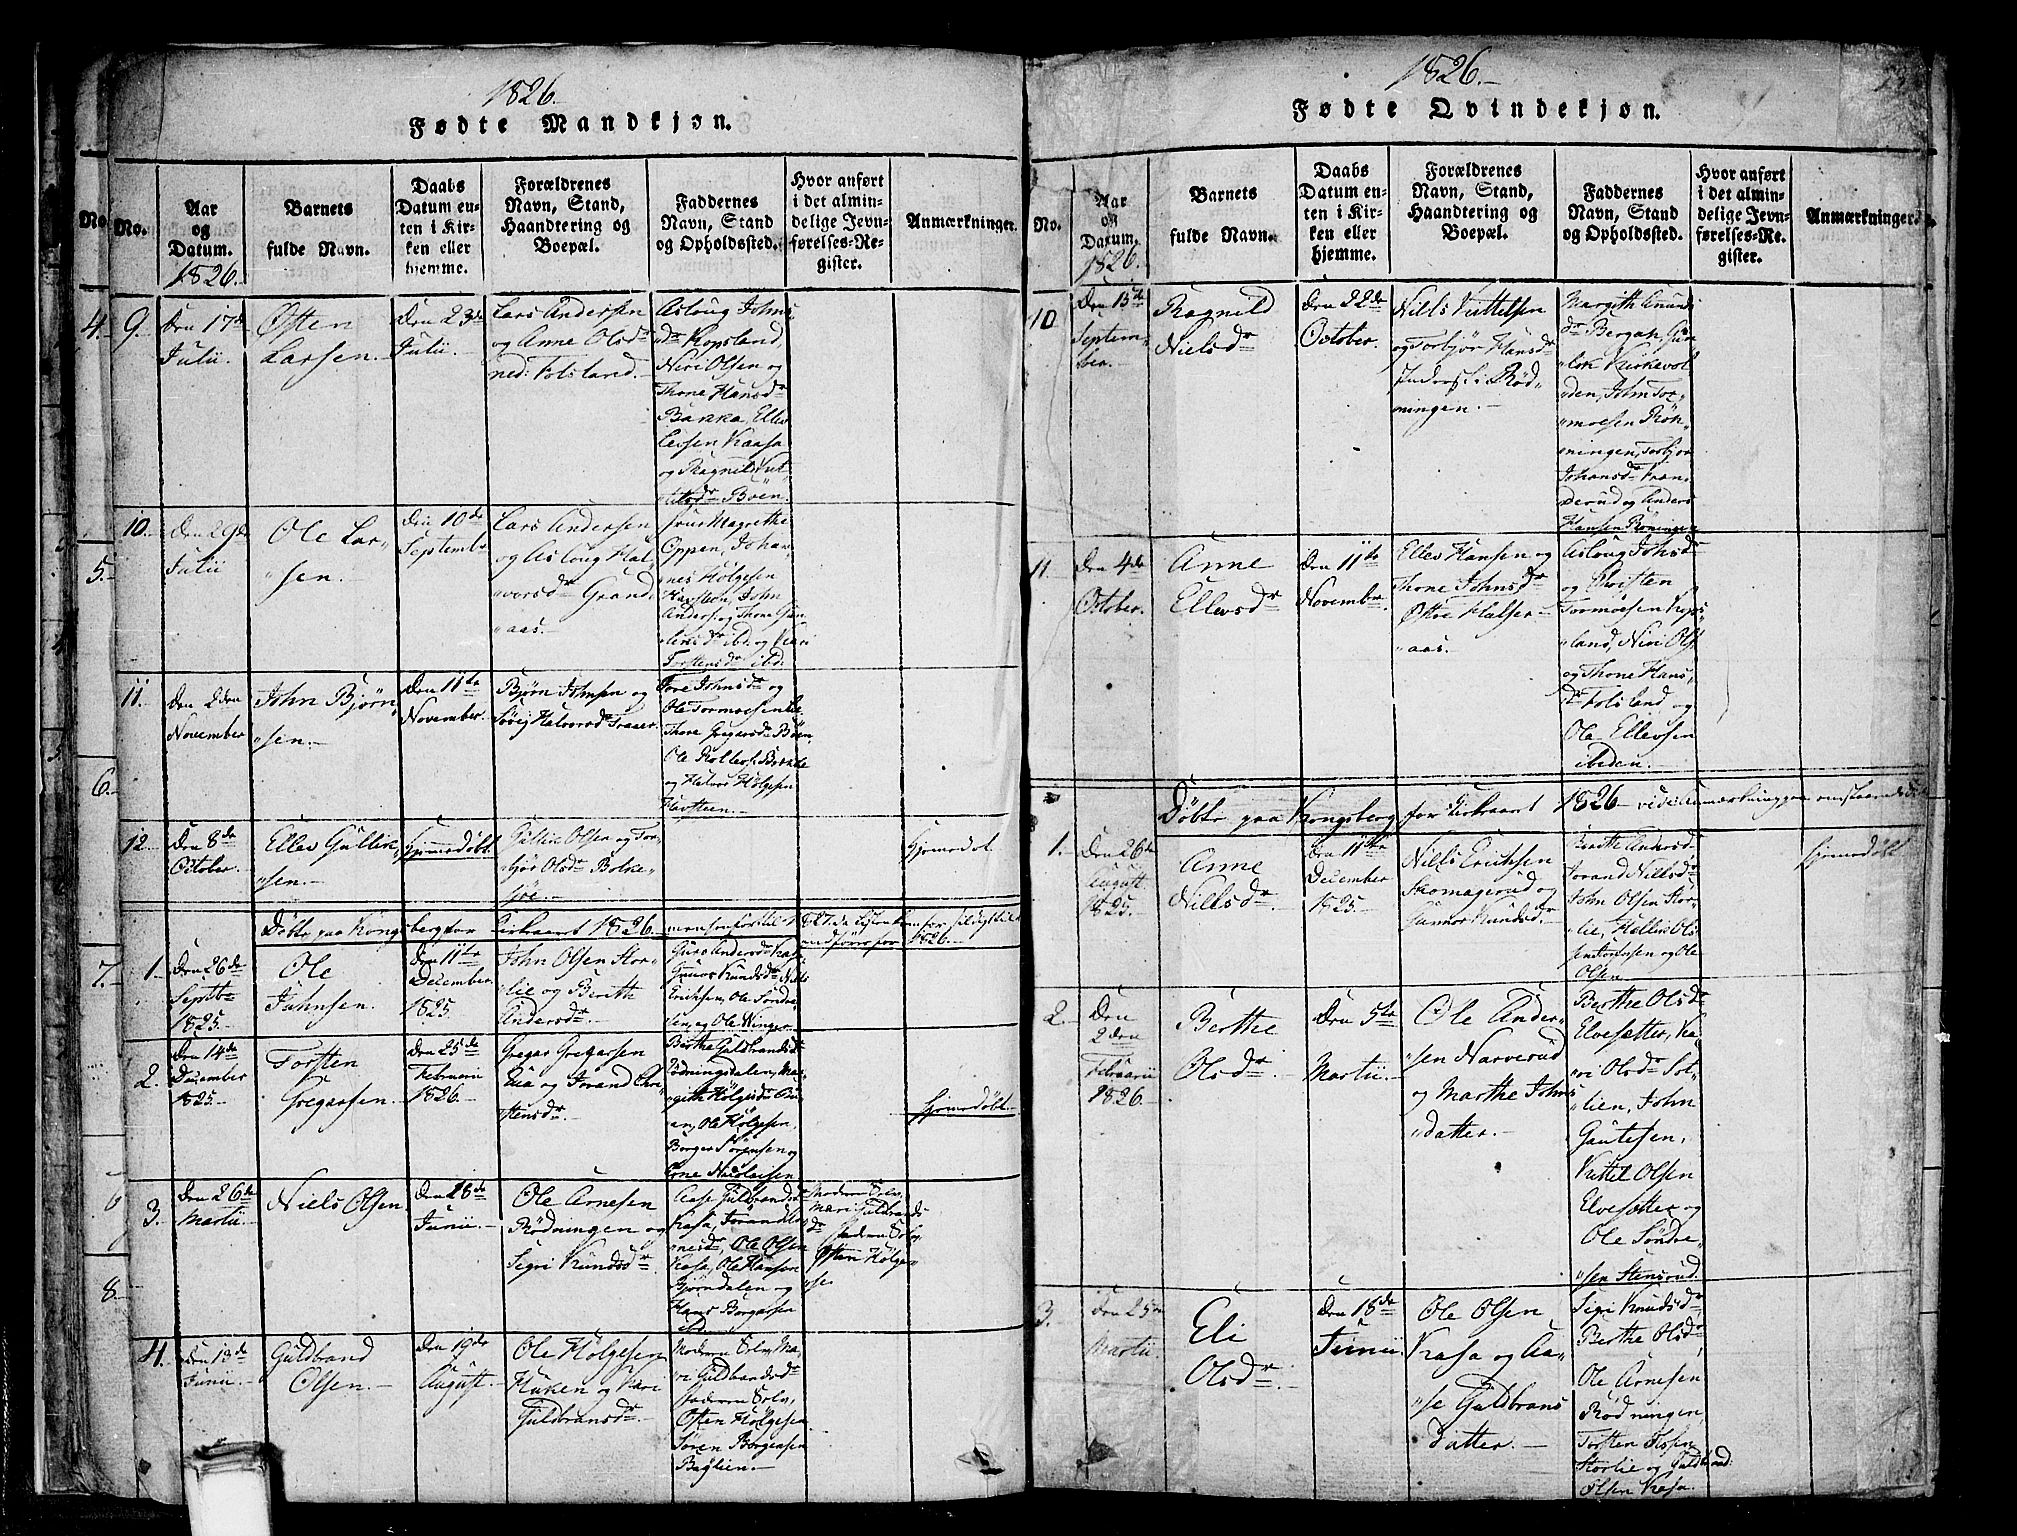 1826.
Fødte Mandkjøn.
No.
No.
Aar
og
Datum.
1826.
Barnets
fulde Navn.
Daabs
Datum en-
ten i Kir-
ken eller
hjemme.
Forældrenes
Navn, Stand,
Haandtering og
Boepæl.
Faddernes
Navn, Stand
og Opholdssted.
Hvor anført
i det almin-
delige Jevn-
førelses-Re-
gister.
Anmærkninger.
4.
9.
Den 17de
Julii.
Østen
Larsen.
Den 23de
Julii.
Lars Andersen
og Anne Olsdr
ned: Folsland.
Asloug Johns
dr Kopsland,
Niri Olsen og
Thone Hansdr
Bakka, Ellev
Leifsen Kaasa
og Ragnild Kit-
telsdr Böen.
5.
10.
Den 29de
Julii
Ole Lar-
sen.
Den 10de
September
Lars Andersen
og Asloug Hal-
vorsdr Grand-
aas.
Frue Magrethe
Oppen, Johan-
nes Hölgesen
Havsteen, John
Anders. og Thone Gun-
ibd. og
Torstensdr ibd.
11.
Den 2den
November
John Björn-
sen.
Den 11te
November.
Bjørn Johnsen og
Halvorsdr Traaer.
Tore Johnsdr og
Ole Tormoesen
Thore Gregarsdr Böen,
Ole
og Halvor Hölgesen
Havsteen.
6.
12.
Den 8de
October.
Ellev Gullik-
sen.
Hjemmedöbt.
Gullik Olsen og Tor-
björ Olsdr Bolke-
söe.
Hjemmedöbt
Döbte paa Kongsberg for Kirkeaaret 1826
1826.
7.
1.
Den 26de
Septbr
1825.
Ole
Johnsen.
Den 11te
December
1825
John Olsen Stor-
lie og Berith
Andersdr.
Guro Andersdr Kasa,
Gunor Knudsdr, Niels
Ericksen, Ole Söndre-
sen, og Ole
2.
Den 14de
December
1825.
Torsten
Gregarsen.
Den 25de
Februarii
1826.
Gregar Gregarsen
og Jorand Chri-
stensdr.
Berthe Guldbrandsdr
Rödningsdalen, Mar-
gith Hölgesdr
Ole Hölgesen,
Borger Sörensen og
Arne Nicolaisen
Hjemmedöbt.
3.
Den 26de
Martii.
Niels Olsen
Den 18de
Junii.
Ole Arnesen
Rödningen og
Sigri Knudsdr.
Aase Guldbrandsdr
Kasa, Jorand
Ole Olsen
Kasa, Ole Hansen
Bjørndalen og
Hans Borgersen
ibd.
Moderen
Mari Guldbrands
dr
Faderen
Østen Hölge-
sen
8.
4.
Den 13de
Junii.
Guldbrand
Olsen.
Den 19de
August.
Ole Hölgesen
Haken og Kari
Guldbransdr.
Moderen Ma-
ri Guldbrandsdr
Faderen
Østen Hölgesen
Sören Borgersen
Baglien.
1826.
Fødte Qvindekjøn.
No.
Aar
og
Datum.
1826.
Barnets
fulde Navn.
Daabs
Datum en-
ten i Kir-
ken eller
hjemme.
Forældrenes
Navn, Stand,
Haandtering og
Boepæl.
Faddernes
Navn, Stand
og Opholdssted.
Hvor anført
i det almin-
delige Jevn-
førelses-Re-
gister.
Anmærkninger.
10
Den 15de
Septem-
ber.
Ragnild
Nielsdr
Den 22de
October.
Niels Kittelsen
og Torbjör Hansdr
Inders. i Röd-
ningen.
Margith Knuds
dr Bergan, Gun-
Kirkevol-
den, John Tor-
moesen Röd-
ningen, Torbjör
Johansdr Tran-
derud og Anders
Hansen Röningen
11.
Den 4de
October.
Anne
Ellevsdr
Den 11te
November.
Ellev Hansen og
Thone Johnsdr
Halser-
aas.
Asloug Johsdr
og Christen
Tormoesen Kops-
land, Niri Ols.
og Thone Hans-
dr Folsland og
Ole Ellevsen
ibiden.
Döbte paa Kongsberg for Kirkeaaret 1826 - vide Anmærkningen omstaaende Side
1.
Den 26de
August
1825.
Anne
Nielsdr
Den 11te
December
1825.
Niels Ericksen
Skomagerud og
Gunnor Knudsdr
Berithe Andersdr
Jorand Nielsdr
John Olsen Stor-
lie,
og Ole
Olsen
Hjemmedöbt
2.
Den
2den
Februarii
1826.
Berthe
Olsdr.
Den 5te
Martii.
Ole Ander-
sen Narverud
og Marthe Johns
datter.
Berthe Olsdr
Elvesætter, Ka-
ri Olsdr Sol-
lien, John
Gautesen,
Kittil Olsen
Elvesætter og
Ole Söndre-
sen Stensrud.
3.
Den 25de
Martii
Eli
Olsdr.
Den 18de
Junii
Ole Olsen
Kasa og Aa-
se Guldbrans
datter.
Sigri Knudsdr
Berthe Olsdr
Ole Arnesen
Rödningen,
Torsten
Storlie og Guldbrand
Olsen Kasa.